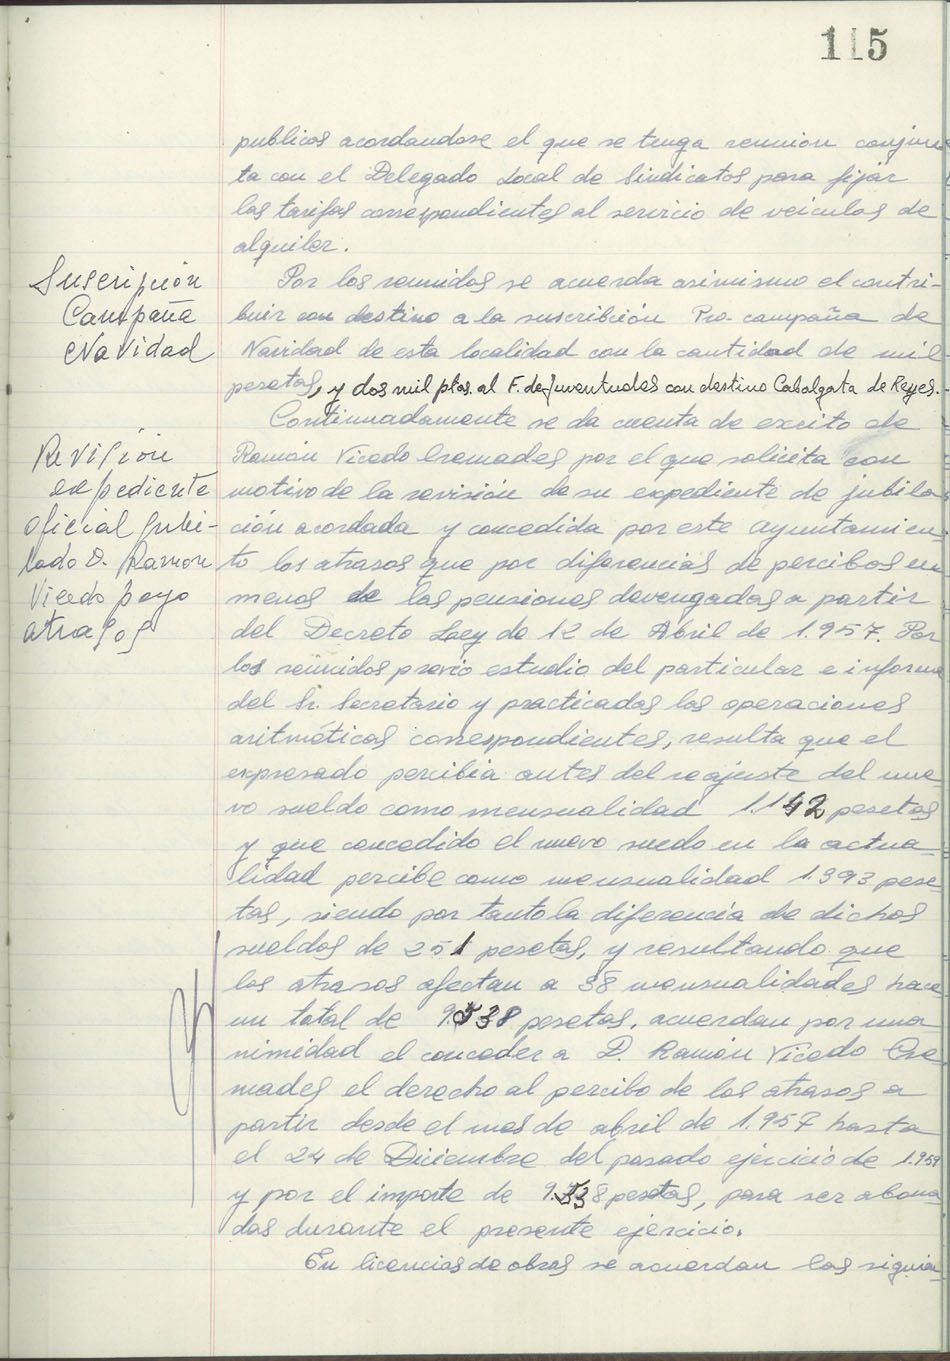 115
publicos acordandose el que se tenga reunion conjun
ta con el Delegado Local de Sindicatos para fijar
las tarifas correspondientes al servicio de veiculos de
alquiler.
Suscripción
Campaña
Navidad
Por los reunidos se acuerda asimismo el contri-
buir con destino a la suscribción Pro-campaña de
Navidad de esta localidad con la cantidad de mil
pesetas, y dos mil ptas. al F. de Juventudes con destino Cabalgata de Reyes.-
Continuadamente se da cuenta de excito de
Revisión
expediente
oficial jubi-
lado D. Ramon
Vicedo pago
atrasos
Ramón Vicedo Cremades por el que solicita con
motivo de la revisión de su expediente de jubila
ción acordada y concedida por este ayuntamien
to los atrasos que por diferencias de percibos en
menos de las pensiones devengadas a partir
del Decreto Ley de 12 de Abril de 1.957. Por
los reunidos previo estudio del particular e informe
del Sr. Secretario y practicadas las operaciones
aritméticas correspondientes, resulta que el
expresado percibia antes del reajuste del nue
vo sueldo como mensualidad 1.142 pesetas
y que concedido el nuevo suedo en la actua-
lidad percibe como mensualidad 1.393 pese
tas, siendo por tanto la diferencia de dichos
sueldos de 251 pesetas, y resultando que
los atrasos afectan a 38 mensualidades hace
un total de 9.538 pesetas, acuerdan por una
nimidad el conceder a D. Ramón Vicedo Cre
mades el derecho al percibo de los atrasos a
partir desde el mes de abril de 1.957 hasta
el 24 de Diciembre del pasado ejercicio de 1.959
y por el importe de 9.538 pesetas, para ser abona
das durante el presente ejercicio.
En licencias de obras se acuerdan las siguien